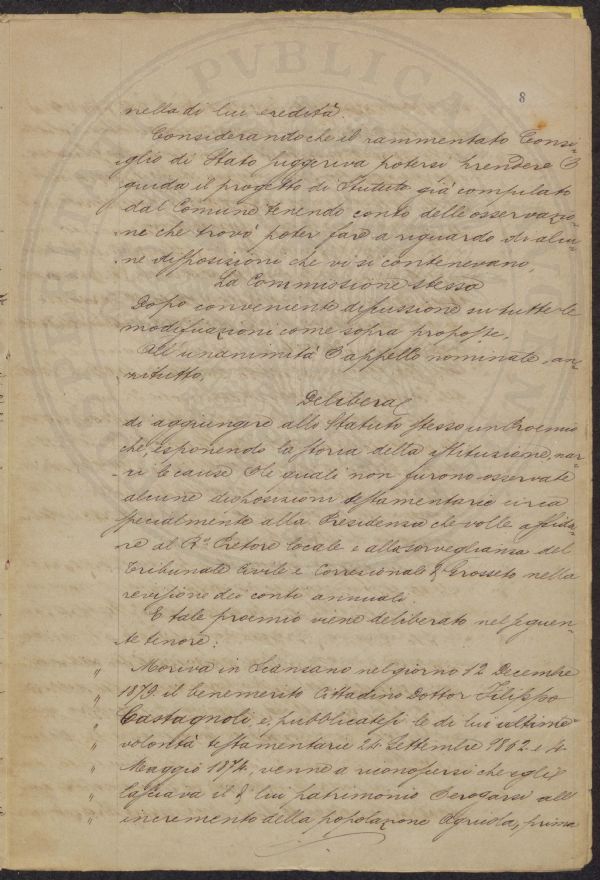 8
nella di lui eredità.
Considerando che il rammentato Consi-
glio di Stato suggeriva potersi prendere a
guida il progetto di Statuto già compilato
dal Comune tenendo conto delle osservazio-
ne che trovò poter fare a riguardo di alcu-
ne disposizioni che vi si contenevano,
La Commissione stessa
Dopo conveniente discussione su tutte le
modificazioni come sopra proposte,
All'unanimità appello nominale, an-
zitutto,
Delibera
di aggiungere allo Statuto stesso un Proemio
che, esponendo la storia della istituzione, nar-
ri le cause le quali non furono osservate
alcune disposizioni testamentarie circa
specialmente alla Presidenza che volle affida-
re al R.º Pretore locale e alla sorveglianza del
Tribunale Civile e Correzionale di Grosseto nella
revisione dei conti annuali.
E tale proemio viene deliberato nel seguen-
te tenore:
" Moriva in Scansano nel giorno 12 Decembre
" 1879 il benemerito Cittadino Dottor Filippo
" Castagnoli e, pubblicatesi le di lui ultime
" volontà testamentarie 24 Settembre 1862 e 4
" Maggio 1874, venne a riconoscersi che egli
" lasciava il di lui patrimonio erogarsi all'
" incremento della popolazione Agricola, prima
PVBLICA